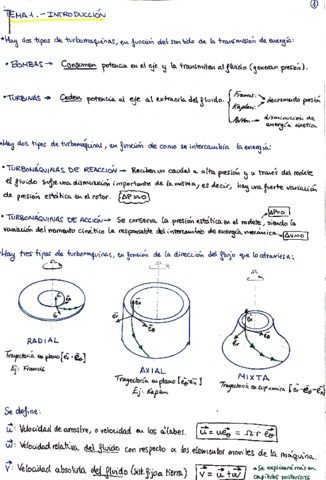 1
TEMA 1.- INTRODUCCIÓN
• Hay dos tipos de turbomaquinas, en función del sentido de la transmisión de energía:
• BOMBAS → Consumen potencia en el eje y la transmiten al fluido (generan presión).
• TURBINAS → Ceden potencia al eje al extraerla del fluido.
Francis:
Kaplan:
decremento presión
Pelton:
disminución de
energía cinética
• Hay dos tipos de turbomáquinas, en función de como se intercambia la energía:
• TURBOMÁQUINAS DE REACCIÓN → Reciben un caudal a alta presión y a través del rodete
el fluido sufre una disminución importante de la misma, es decir, hay una fuerte variación
de presión estática en el rotor.
• TURBOMÁQUINAS DE ACCIÓN → Se conserva la presión estática en el rodete, siendo la ΔP≈0
variación del momento cinético la responsable del intercambio de energía mecánica.
• Hay tres tipos de turbomaquinas, en función de la dirección del flujo que la atraviesa:
RADIAL
Trayectoria en plano
Ej: Francis
AXIAL
Trayectoria en plano
Ej: Kaplan
MIXTA
Se define:
u: Velocidad de arrastre, o velocidad en los álabes.
w: Velocidad relativa del fluido con respecto a los elementos moviles de la máquina.
v: Velocidad absoluta del fluido (ref. fija tierra)
v = u + w
* Se explicará más en
capítulos posteriores